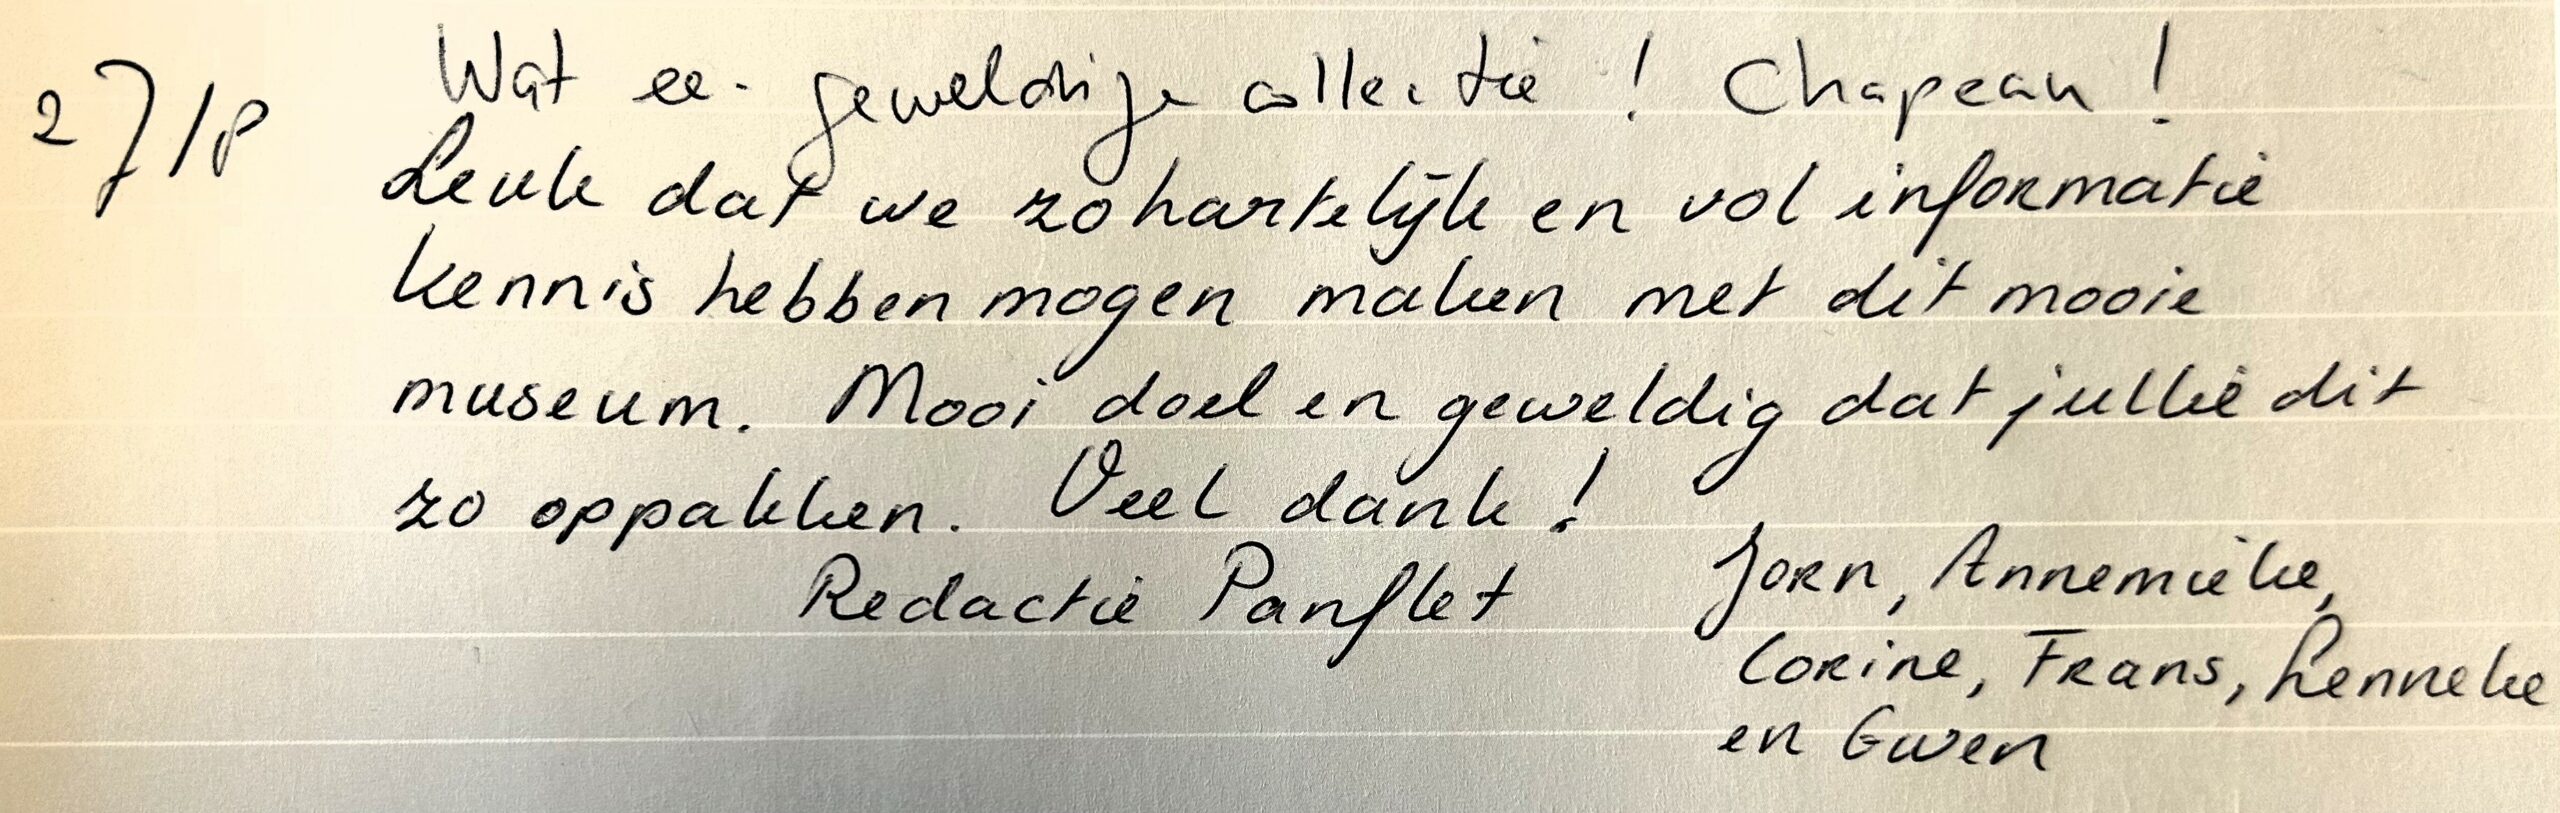 27/8 Wat een geweldige collectie! Chapeau!
Leuk dat we zo hartelijk en vol informatie
kennis hebben mogen maken met dit mooie
museum. Mooi doel en geweldig dat jullie dit
zo oppakken. Veel dank!
Redactie Panflet
Jorn, Annemieke,
Corine, Frans, Lenneke
en Gwen